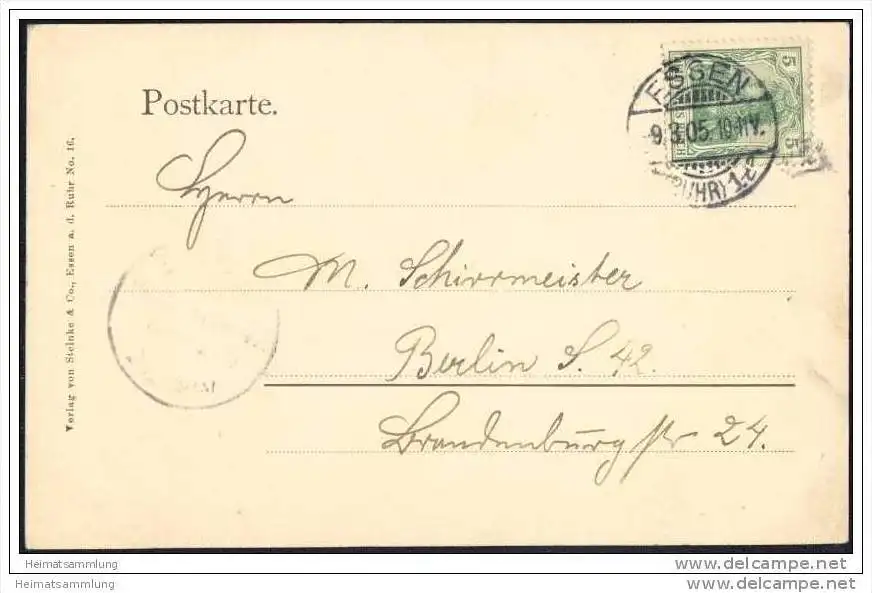 Postkarte.
5
5
ESSEN
9.3.05. 10-11V.
(RUHR) 1
Herrn
M. Schirrmeister
Berlin S. 42.
Brandenburgstr 24.
Verlag von Steinke & Co., Essen a. d. Ruhr No. 16.
Heimatsammlung
www.delcampe.net
Heimatsammlung
www.delcampe.net